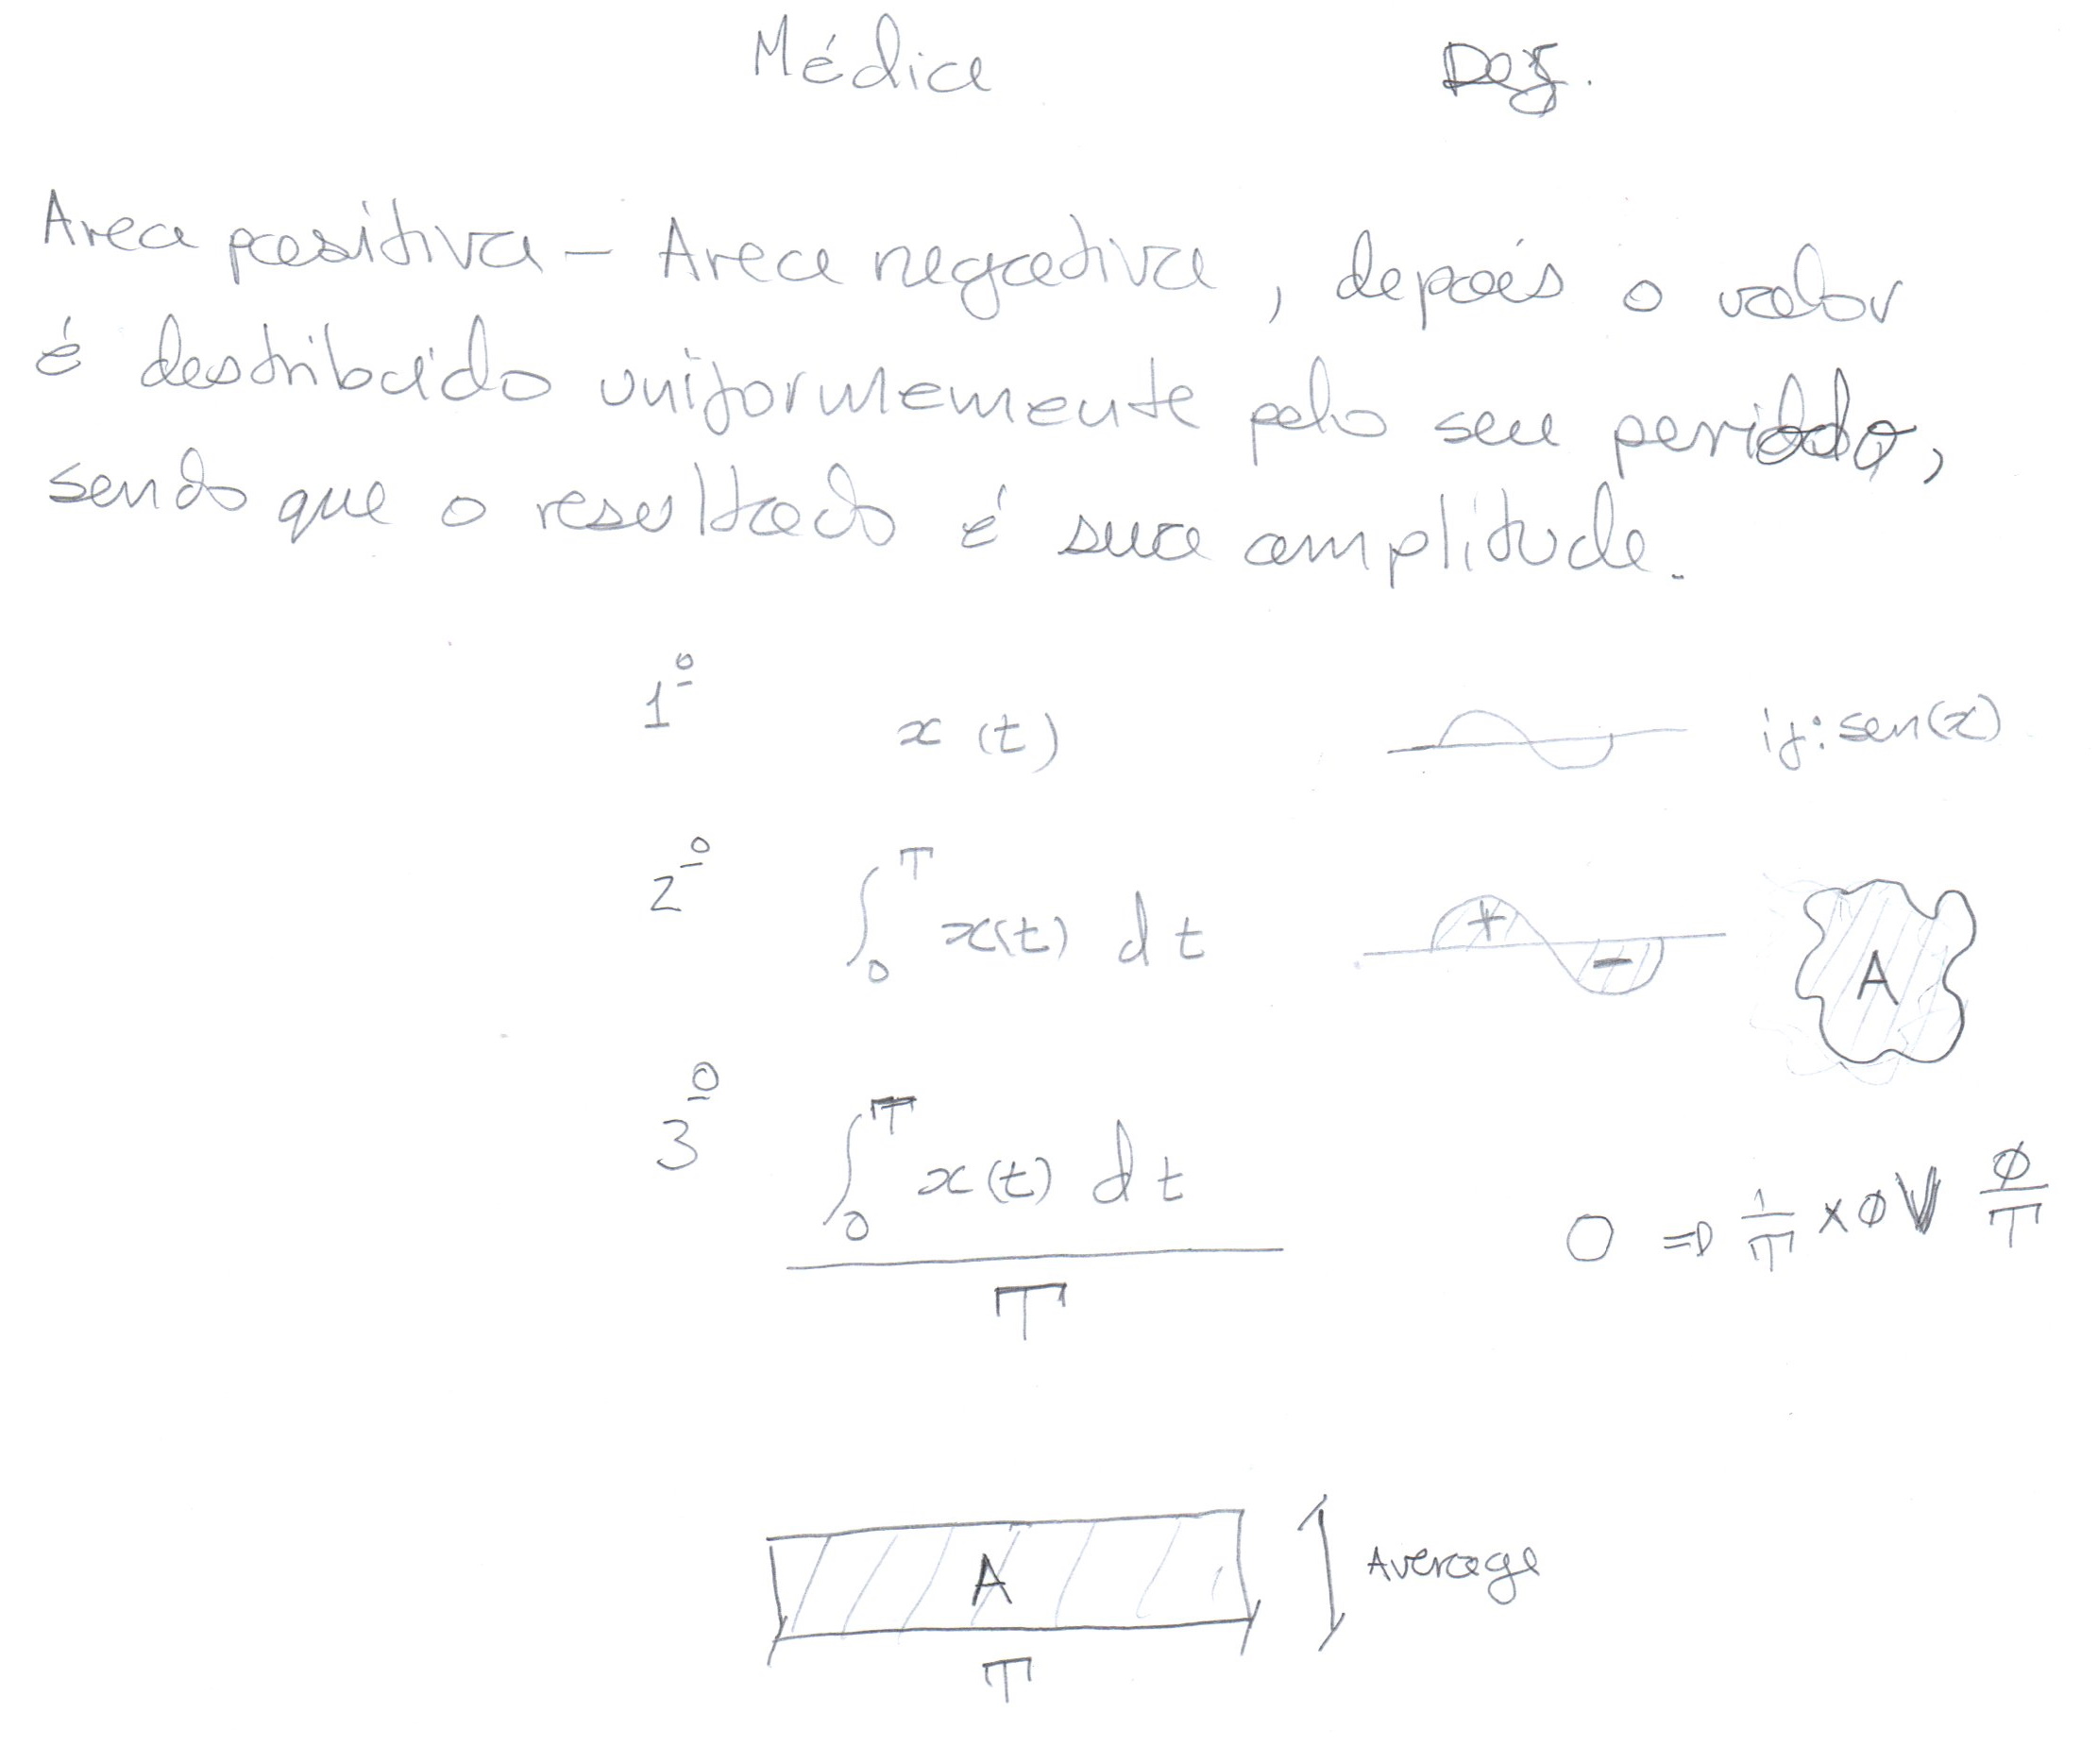 Média Def.
Area positiva - Area negativa, depois o valor
é destribuido uniformemente pelo seu periodo,
sendo que o resultado é sua amplitude.
1º x(t) if: sen(x)
2º ∫₀ᵀ x(t) dt + - A
3º ∫₀ᵀ x(t) dt
T
0 => 1/T × ∅ V ∅/T
A Average
T